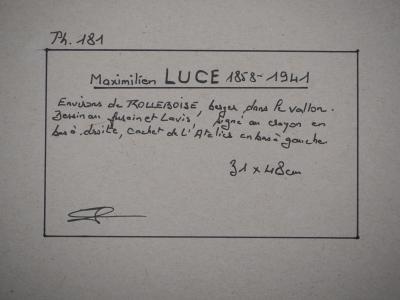 Ph. 181
Maximilien LUCE 1858-1941
Environs de ROLLEBOISE, berger dans le vallon.
Dessin au fusain et Lavis, signé au crayon en
bas à droite, cachet de L'Atelier en bas à gauche
31 x 48 cm